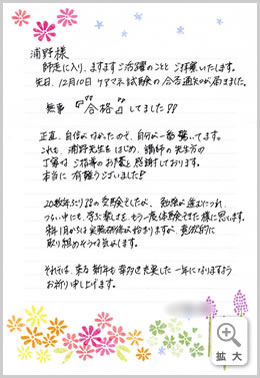 浦野様
師走に入り、ますますご活躍のことと ご拝察いたします。
先日、12月10日 ケアマネ試験の合否通知が届きました。
無事 『『合格』』してました!!
正直、自信がなかったので、自分が一番 驚いてます。
これも、浦野先生をはじめ、講師の先生方の
丁寧なご指導のお蔭と感謝しております。
本当に 有難うございました!
20数年ぶりの受験でしたが、勉強が進むにつれ、
つらい中にも、学ぶ楽しさを、もう一度体験できた様に思います。
来年1月からは実務研修が始まりますが、意欲的に
取り組めそうな気がします。
それでは、来る 新年も 幸多き充実した 一年になりますよう
お祈り申し上げます。
拡大